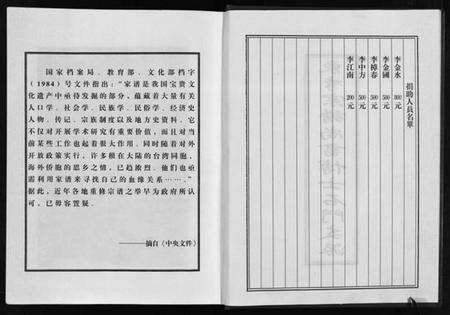 国家档案局、教育部、文化部档字
(1984)号文件指出:“家谱是我国宝贵文
化遗产中亟待发掘的部分,蕴藏着大量有关
人口学、社会学、民族学、民俗学、经济史
人物、传记、宗族制度以及地方史资料。它
不仅对开展学术研究有重要价值,而且对当
前某些工作也起着很大作用。同时随着对外
开放政策实行,许多根在大陆的台湾同胞,
海外侨胞的思乡之情,已趋浓烈。他们也亟
需利用家谱来寻找自己的血缘关系……。”
据此,近年各地重修宗谱之举早为政府所认
可,已毋容置疑。
——摘自《中央文件》
捐助人员名單
李金水 800元
李金國 500元
李樟春 500元
李中方 500元
李江南 200元